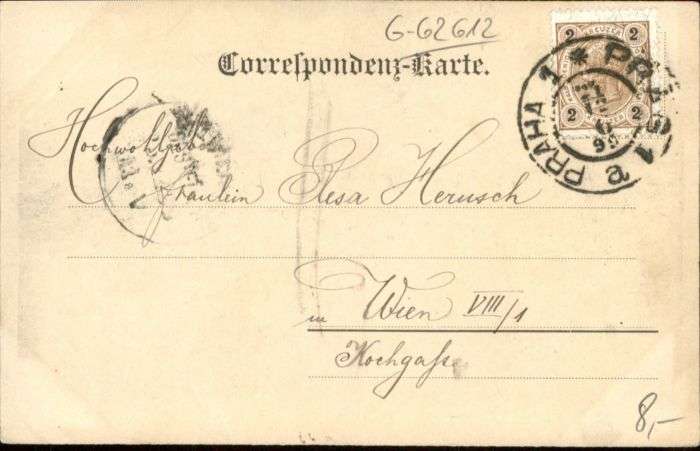 G-62612
Correspondenz-Karte.
2 2
2 2
PRAHA 1 * PRAG 1
6
Hochwohlgeb
Fräulein Resa Herusch
in Wien VIII/1
Kochgasse
8,-